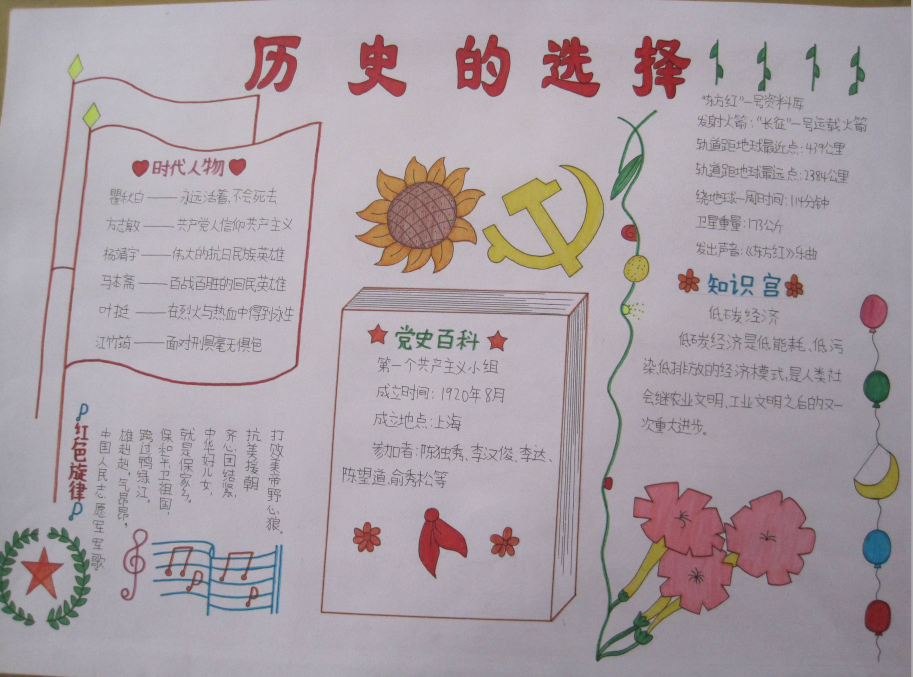 历史的选择
时代人物
瞿秋白——永远活着,不会死去
方志敏——共产党人信仰共产主义
杨靖宇——伟大的抗日民族英雄
马本斋——百战百胜的回民英雄
叶挺——在烈火与热血中得到永生
江竹筠——面对刑具毫无惧色
红色旋律
中国人民志愿军军歌
雄赳赳,气昂昂,
跨过鸭绿江,
保和平,卫祖国,
就是保家乡。
中华好儿女,
齐心团结紧,
抗美援朝
打败美帝野心狼。
党史百科
第一个共产主义小组
成立时间:1920年8月
成立地点:上海
参加者:陈独秀、李汉俊、李达、
陈望道、俞秀松等
“东方红”一号资料库
发射火箭:“长征”一号运载火箭
轨道距地球最近点:439公里
轨道距地球最远点:2384公里
绕地球一周时间:114分钟
卫星重量:173公斤
发出声音:《东方红》乐曲
知识宫
低碳经济
低碳经济是低能耗、低污
染、低排放的经济模式,是人类社
会继农业文明、工业文明之后的又一
次重大进步。